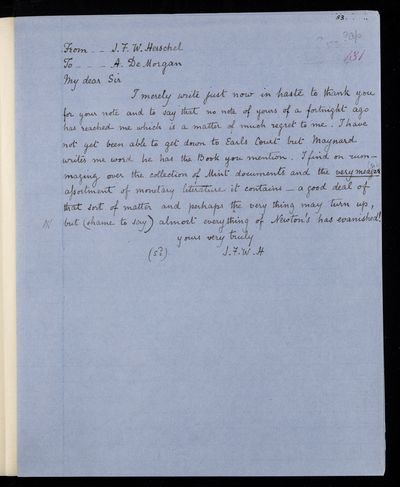 53.
481
From _ _ J.F.W. Herschel
To _ _ _ A. De Morgan
My dear Sir
I merely write just now in haste to thank you
for your note and to say that no note of yours of a fortnight ago
has reached me which is a matter of much regret to me. I have
not yet been able to get down to Earls Court but Maynard
writes me word he has the Book you mention. I find on rum-
maging over the collection of Mint documents and the very meager
assortment of monetary literature it contains _ a good deal of
that sort of matter and perhaps the very thing may turn up,
but (shame to say) almost everything of Newton's has evanished!
yours very truly
(s?) J.F.W.H